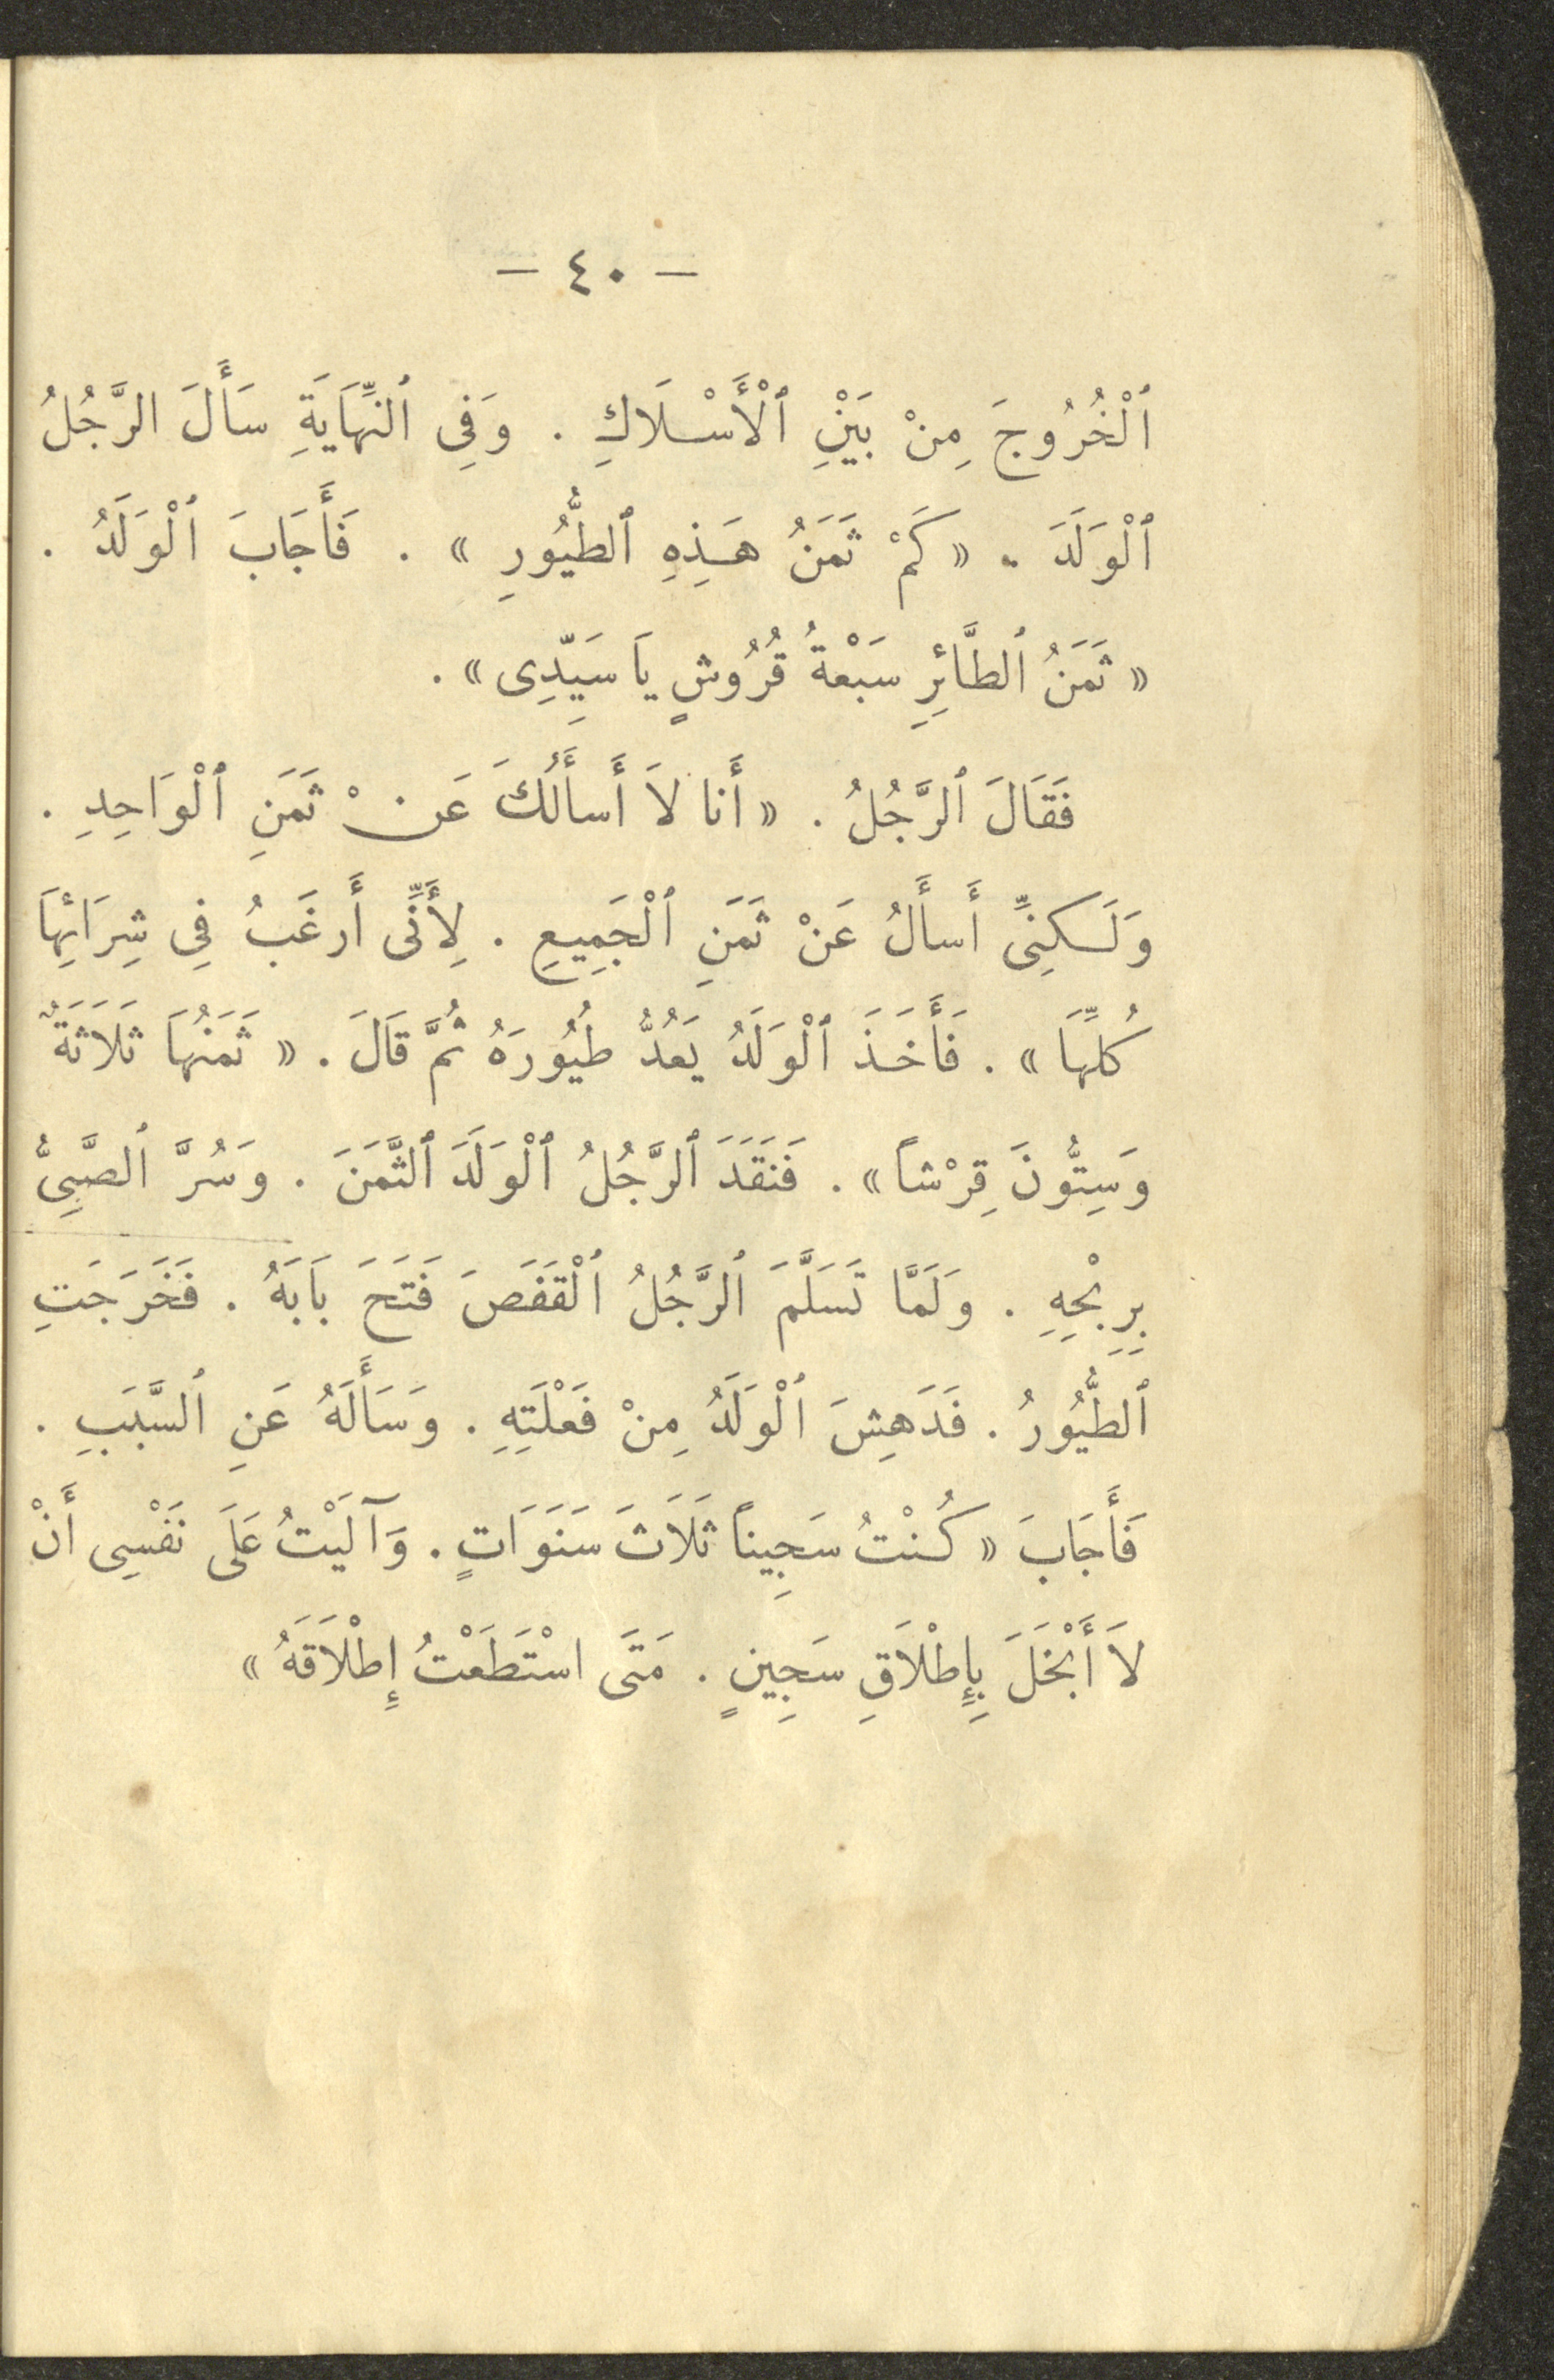 — ٤٠ —
ٱلْخُرُوجَ مِنْ بَيْنِ ٱلْأَسْلَاكِ . وَفِى ٱلنِّهَايَةِ سَأَلَ الرَّجُلُ
ٱلْوَلَدَ . « كَمْ ثَمَنُ هَذِهِ ٱلطُّيُورِ » . فَأَجَابَ ٱلْوَلَدُ .
« ثَمَنُ ٱلطَّائِرِ سَبْعةُ قُرُوشٍ يَا سَيِّدِى » .
فَقَالَ ٱلرَّجُلُ . « أَنا لاَ أَسأَلُكَ عَنْ ثَمَنِ ٱلْوَاحِدِ .
وَلَـكِنِّى أَسأَلُ عَنْ ثَمَنِ ٱلْجَمِيعِ . لِأَنِّى أَرغَبُ فِى شِرَائِهَا
كُلِّهَا » . فَأَخَذَ ٱلْوَلَدُ يَعُدُّ طُيُورَهُ ثُمَّ قَالَ . « ثَمَنُهَا ثَلَاثَةٌ
وَسِتُّونَ قِرْشاً » . فَنَقَدَ ٱلرَّجُلُ ٱلْوَلَدَ ٱلثَّمَنَ . وَسُرَّ ٱلصَّبِىُّ
بِرِبْحِهِ . وَلَمَّا تَسَلَّمَ ٱلرَّجُلُ ٱلْقَفَصَ فَتَحَ بَابَهُ . فَخَرَجَتِ
ٱلطُّيُورُ . فَدَهِشَ ٱلْوَلَدُ مِنْ فَعْلَتِهِ . وَسَأَلَهُ عَنِ ٱلسَّبَبِ .
فَأَجَابَ « كُنْتُ سَجِيناً ثَلَاثَ سَنَوَاتٍ . وَآلَيْتُ عَلَى نَفْسِى أَنْ
لَا أَبْخَلَ بِإِطْلَاقِ سَجِينٍ . مَتَى اسْتَطَعْتُ إِطْلَاقَهُ »